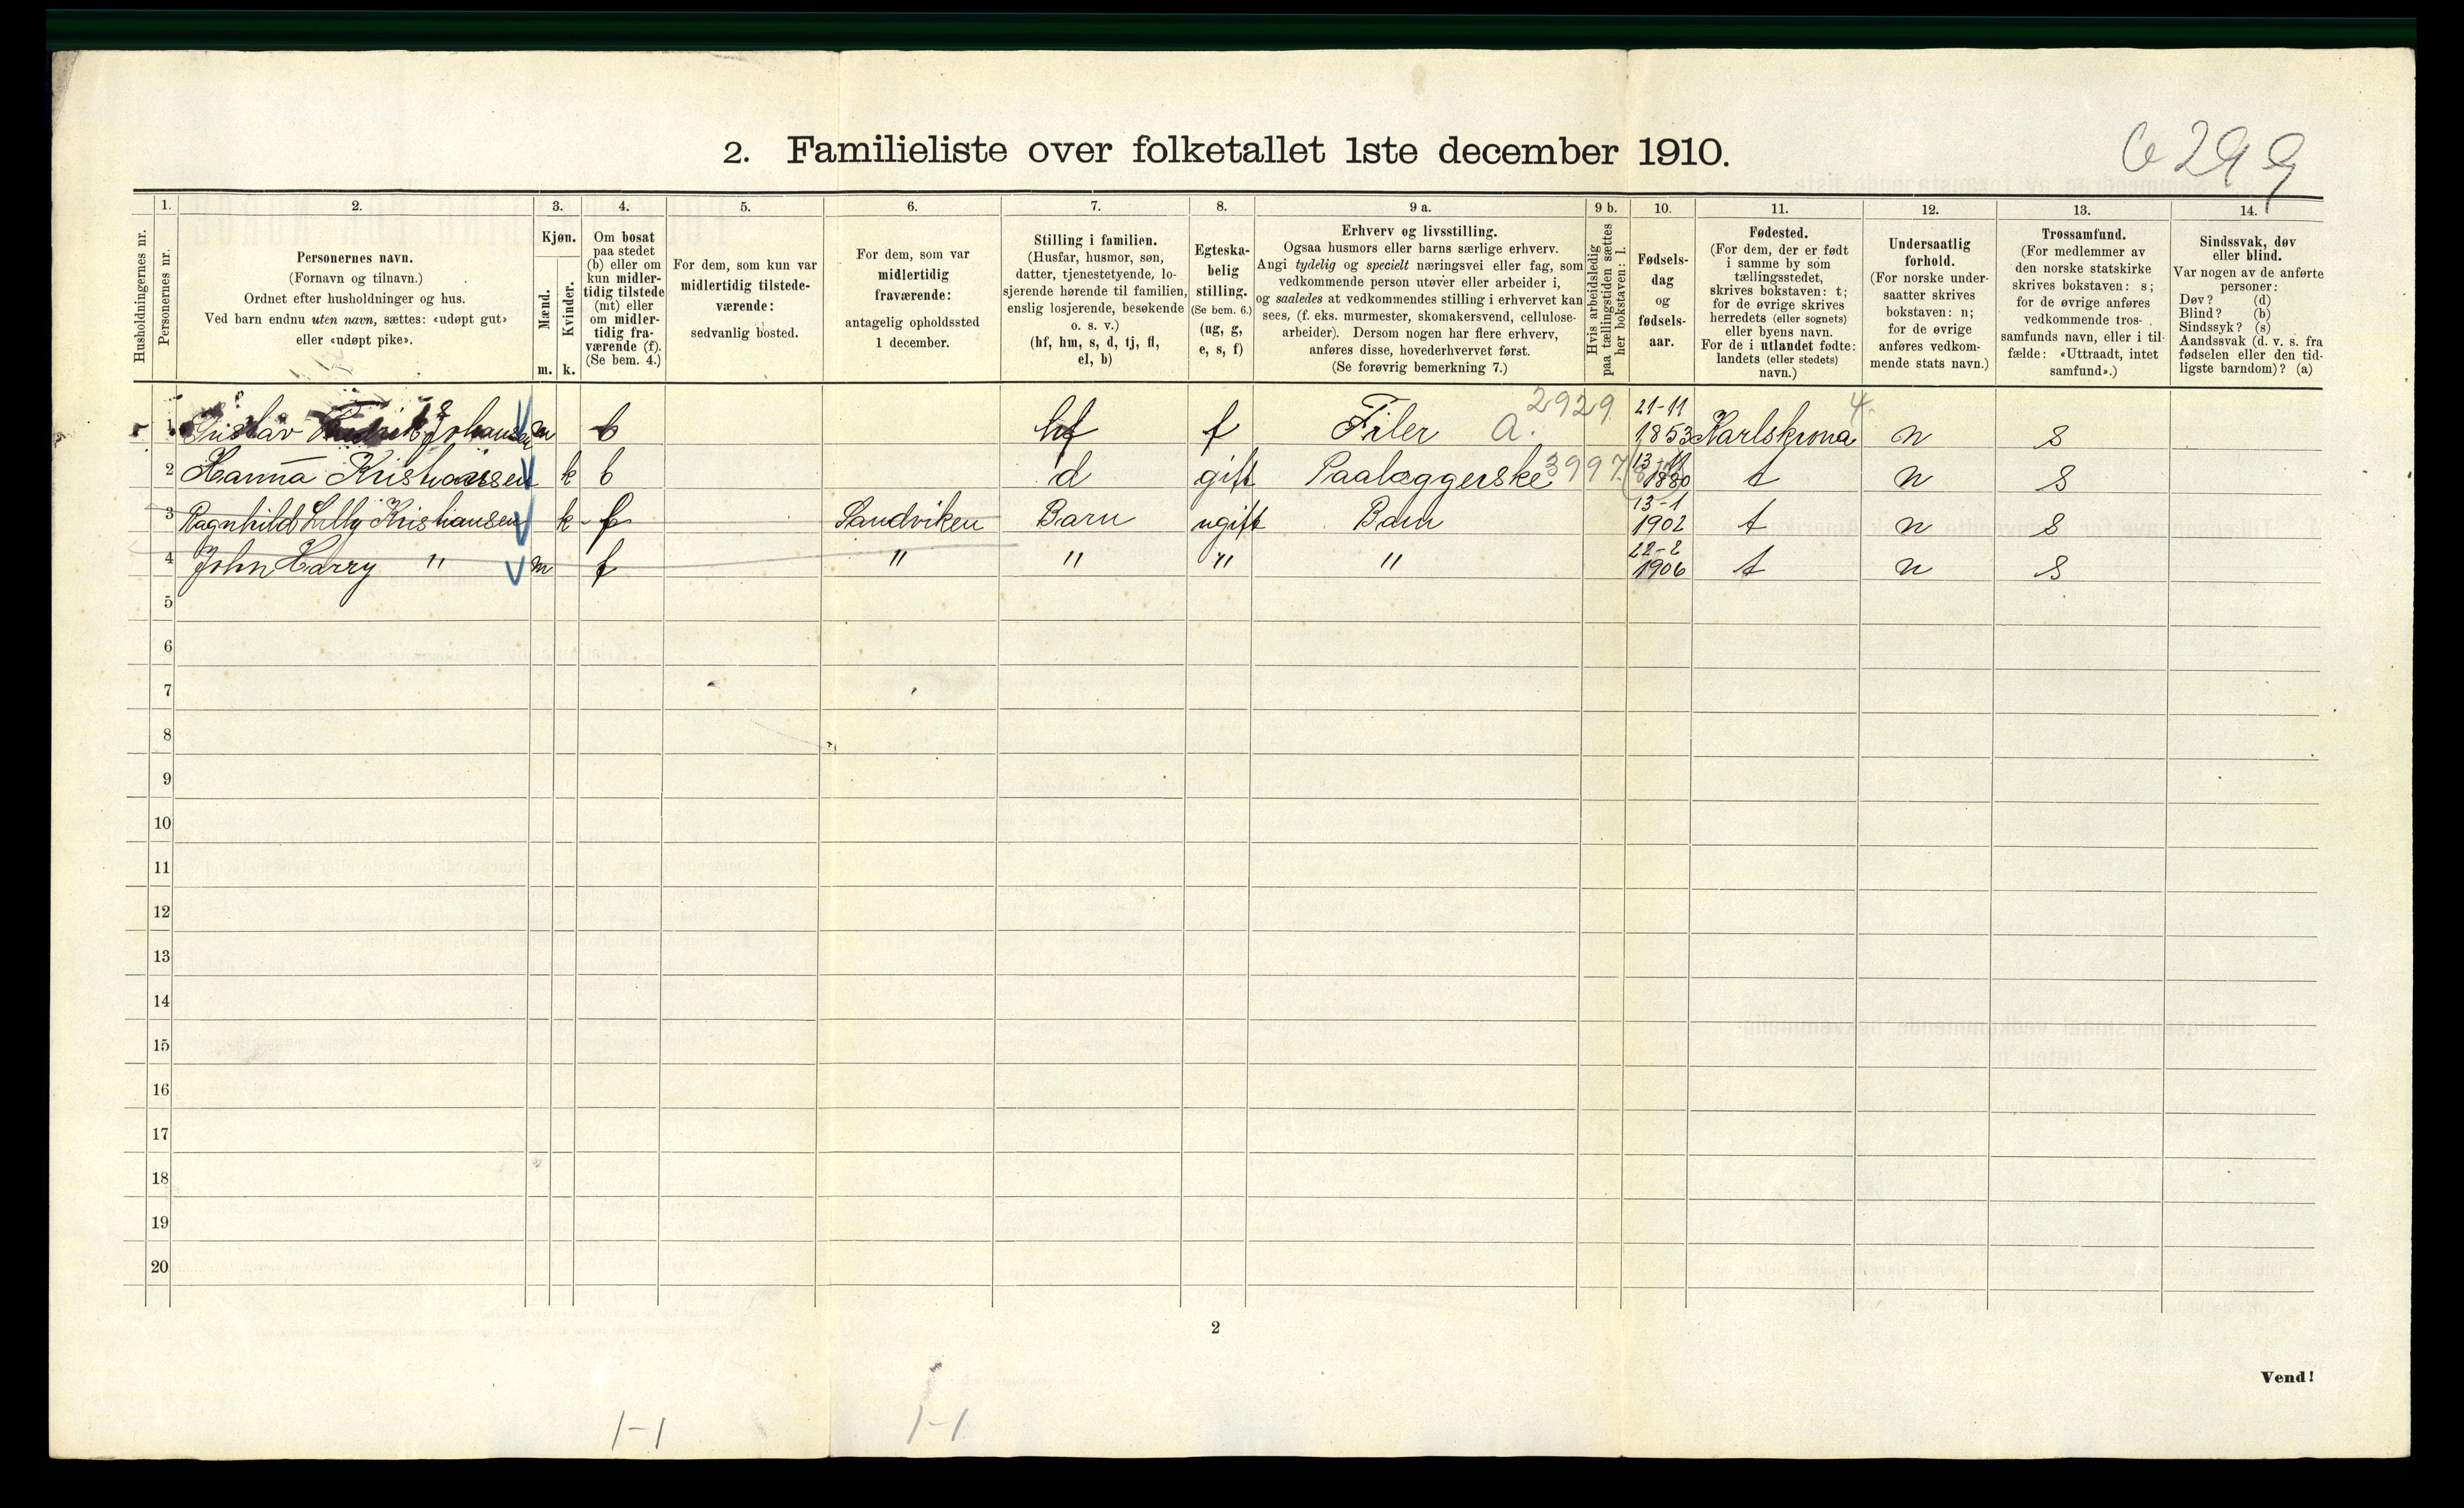 6299
2. Familieliste over folketallet 1ste december 1910.
1. 2. 3. 4. 5. 6. 7. 8. 9 a. 9 b. 10. 11. 12. 13. 14.
Husholdningernes nr.
Personernes nr.
Personernes navn.
(Fornavn og tilnavn.)
Ordnet efter husholdninger og hus.
Ved barn endnu uten navn, sættes: «udøpt gut»
eller «udøpt pike».
Kjøn.
Mænd.
m.
Kvinder.
k.
Om bosat
paa stedet
(b) eller om
kun midler-
tidig tilstede
(mt) eller
om midler-
tidig fra-
værende (f).
(Se bem. 4.)
For dem, som kun var
midlertidig tilstede-
værende:
sedvanlig bosted.
For dem, som var
midlertidig
fraværende:
antagelig opholdssted
1 december.
Stilling i familien.
(Husfar, husmor, søn,
datter, tjenestetyende, lo-
sjerende hørende til familien,
enslig losjerende, besøkende
o. s. v.)
(hf, hm, s, d, tj, fl,
el, b)
Egteska-
belig
stilling.
(Se bem. 6.)
(ug, g,
e, s, f)
Erhverv og livsstilling.
Ogsaa husmors eller barns særlige erhverv.
Angi tydelig og specielt næringsvei eller fag, som
vedkommende person utøver eller arbeider i,
og saaledes at vedkommendes stilling i erhvervet kan
sees, (f. eks. murmester, skomakersvend, cellulose-
arbeider). Dersom nogen har flere erhverv,
anføres disse, hovederhvervet først.
(Se forøvrig bemerkning 7.)
Hvis arbeidsledig
paa tællingstiden sættes
her bokstaven: l.
Fødsels-
dag
og
fødsels-
aar.
Fødested.
(For dem, der er født
i samme by som
tællingsstedet,
skrives bokstaven: t;
for de øvrige skrives
herredets (eller sognets)
eller byens navn.
For de i utlandet fødte:
landets (eller stedets)
navn.)
Undersaatlig
forhold.
(For norske under-
saatter skrives
bokstaven: n;
for de øvrige
anføres vedkom-
mende stats navn.)
Trossamfund.
(For medlemmer av
den norske statskirke
skrives bokstaven: s;
for de øvrige anføres
vedkommende tros-
samfunds navn, eller i til-
fælde: «Uttraadt, intet
samfund».)
Sindssvak, døv
eller blind.
Var nogen av de anførte
personer:
Døv? (d)
Blind? (b)
Sindssyk? (s)
Aandssvak (d. v. s. fra
fødselen eller den tid-
ligste barndom)? (a)
1 Gustav Johansen m b hf f Filer a. 2929 21-11 1853 Karlskrona 4. n s
2 Hanna Kristiansen k b d gift Paalæggerske 3997 13-11 1880 t n s
3 Ragnhild Lilly Kristiansen k f Sandviken Barn ugift Barn 13-1 1902 t n s
4 John Harry " m f " " " " 22-2 1906 t n s
5
6
7
8
9
10
11
12
13
14
15
16
17
18
19
20
2
Vend!
1-1 1-1